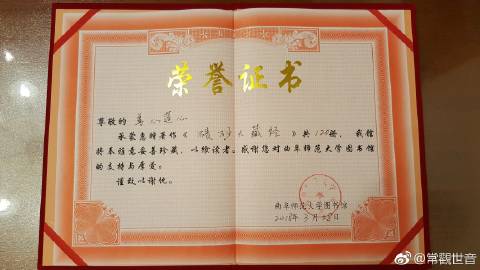 荣誉证书
尊敬的 善心莲心
承蒙惠赠著作《碛砂大藏经》共120册，我馆
将恭谨惠妥善珍藏，以飨读者。感谢您对曲阜师范大学图书馆
的支持与厚爱。
谨致以谢忱。
曲阜师范大学图书馆
2018年3月28日
@常觀世音